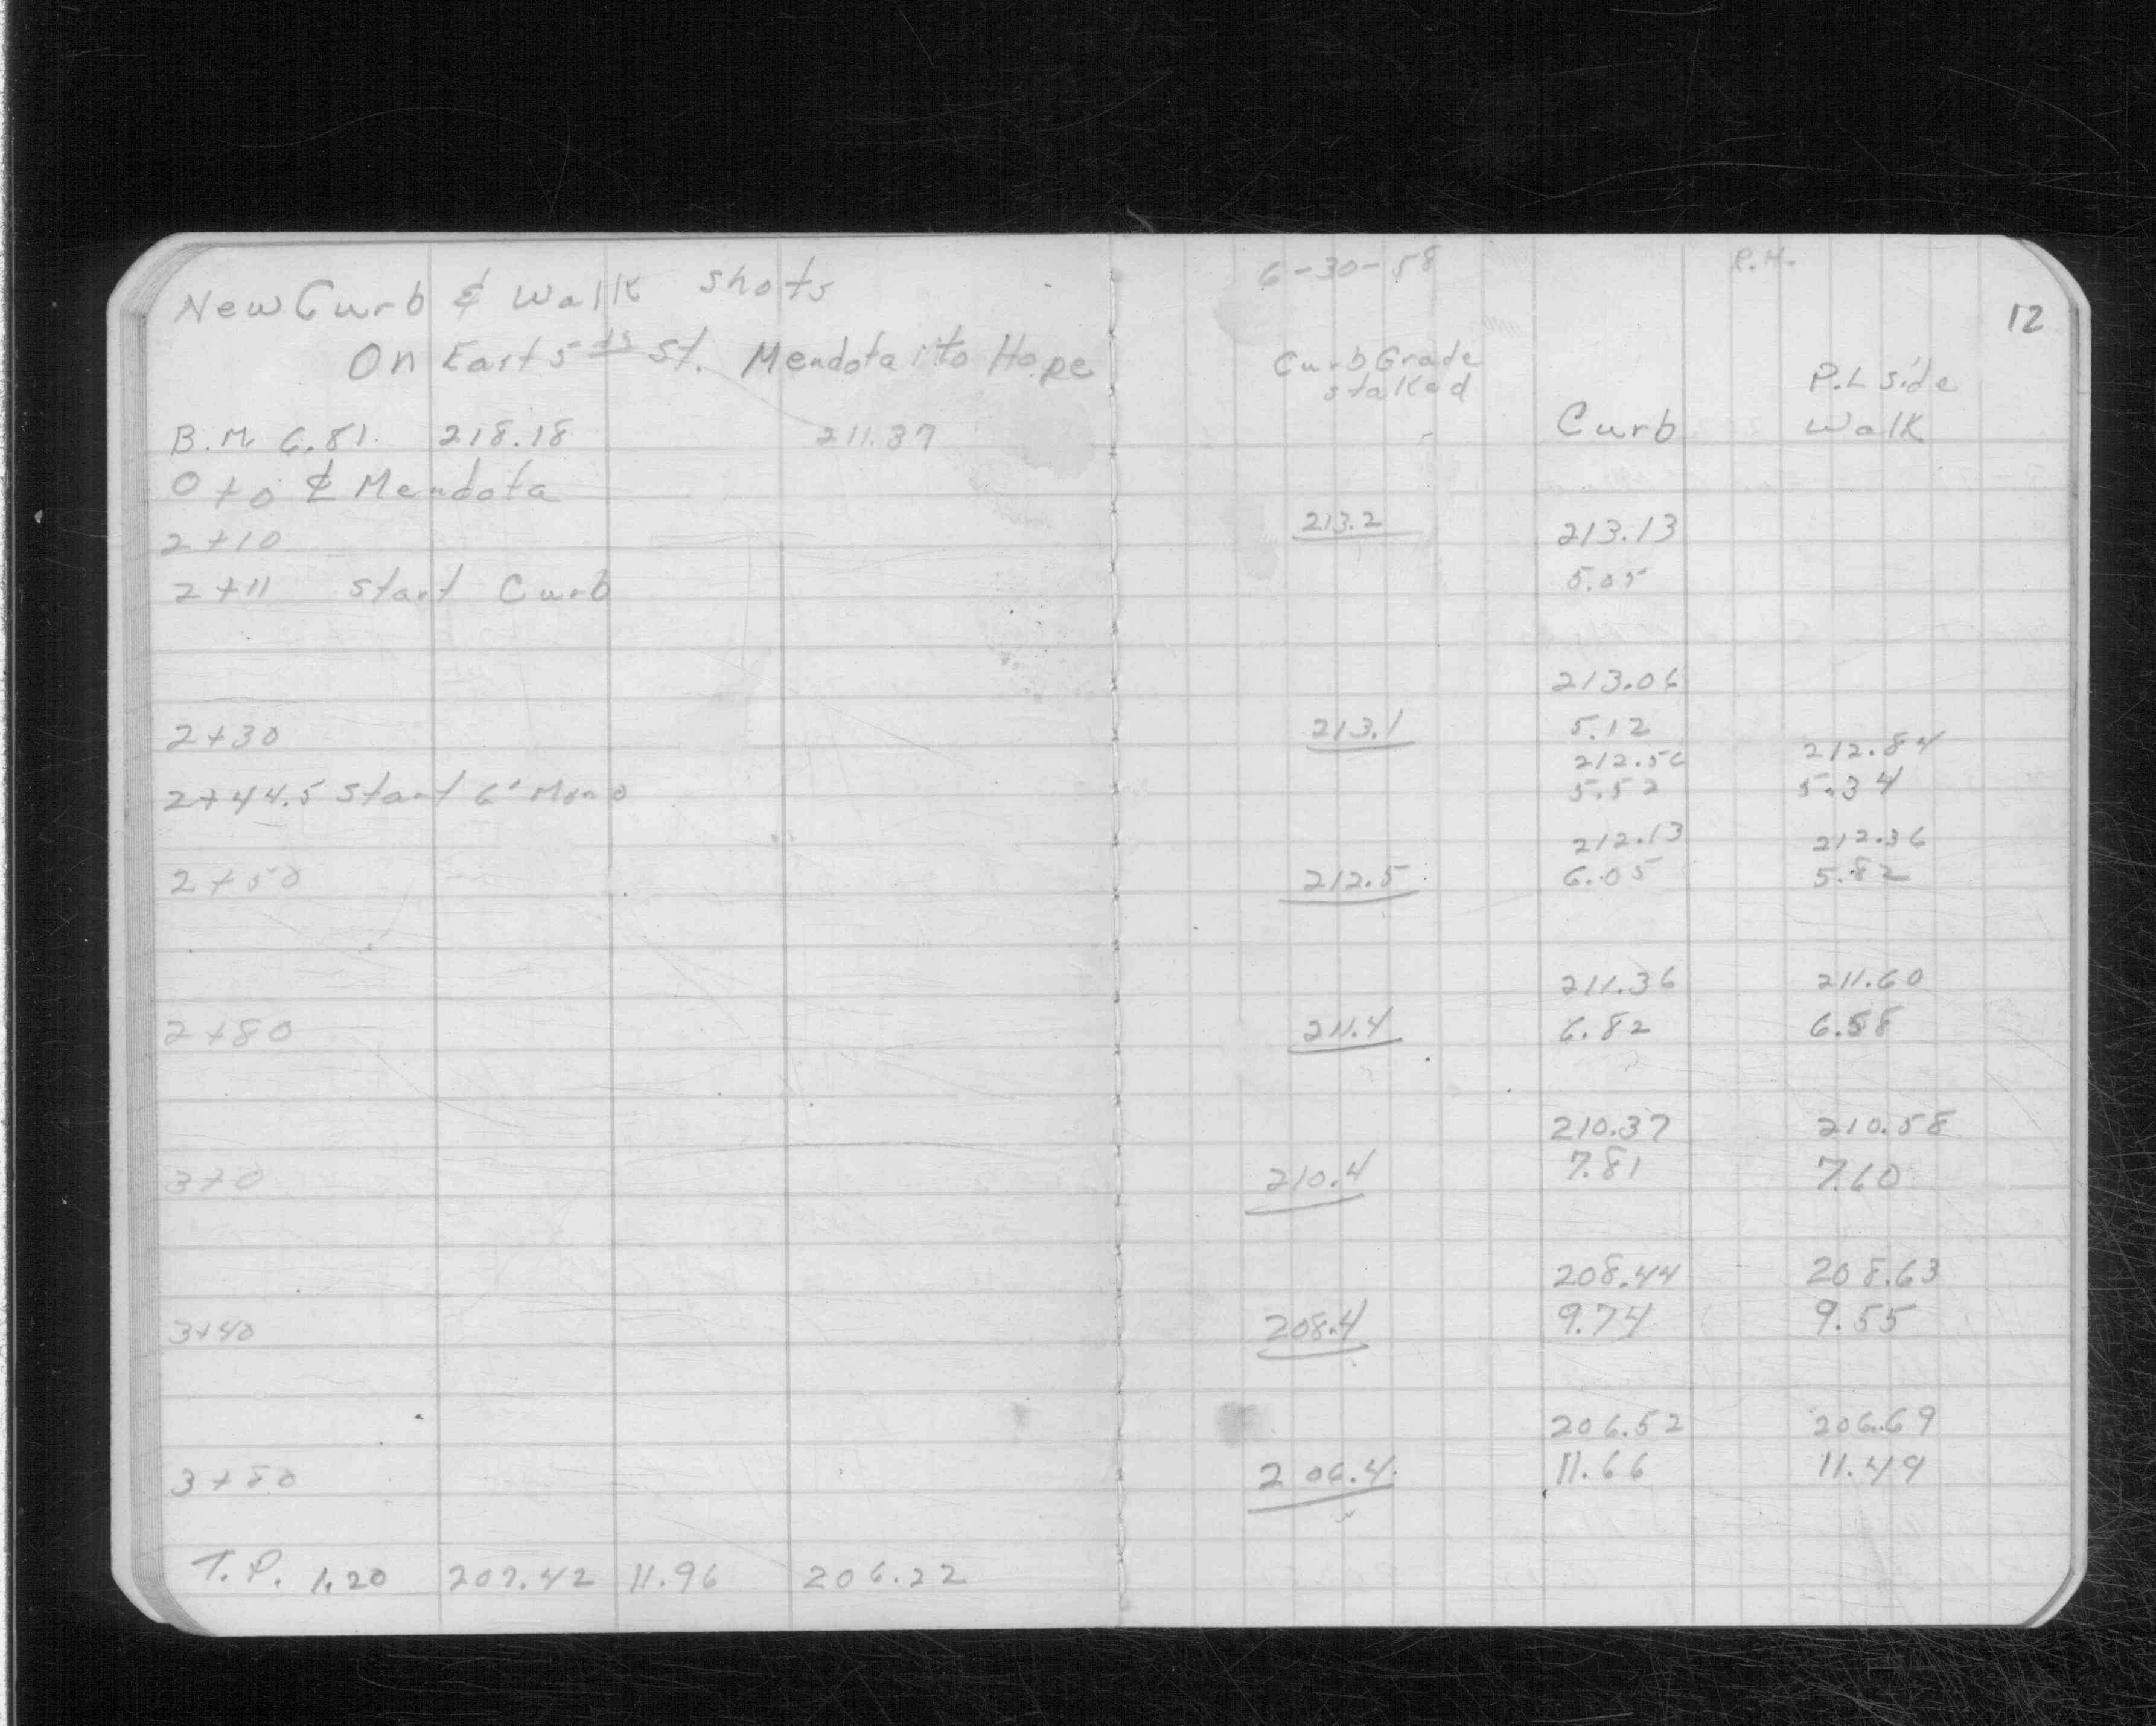 New Curb & Walk shots
On East 5th St. Mendota to Hope
B.M. 6.81 218.18 211.37
0+0 ₵ Mendota
2+10
2+11 start Curb
2+30
2+44.5 start 6' Mono
2+50
2+80
3+0
3+40
3+80
T.P. 1.20 207.42 11.96 206.22
6-30-58 P.M.
12
Curb Grade
staked
Curb
P.L side
walk
213.2 213.13
5.05
213.06
213.1 5.12
212.56 212.84
5.52 5.34
212.13 212.36
212.5 6.05 5.82
211.36 211.60
211.4 6.82 6.58
210.37 210.58
210.4 7.81 7.60
208.44 208.63
208.4 9.74 9.55
206.52 206.69
206.4 11.66 11.49